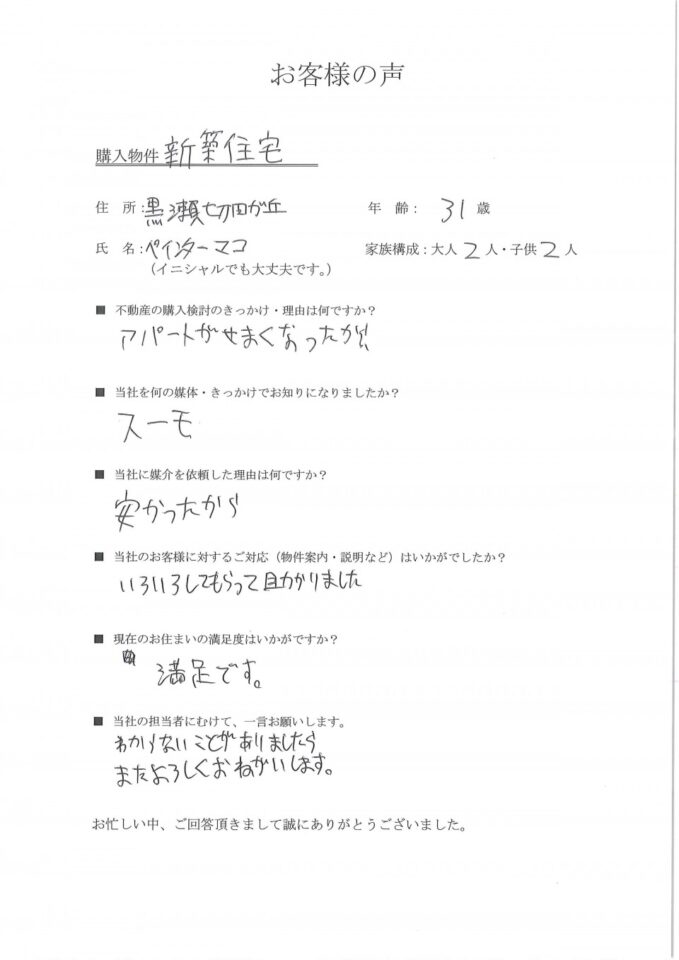 お客様の声
購入物件 新築住宅
住 所：黒瀬切田が丘 年 齢： 31 歳
氏 名：ペインターマコ 家族構成：大人 2 人・子供 2 人
（イニシャルでも大丈夫です。）
■ 不動産の購入検討のきっかけ・理由は何ですか？
アパートがせまくなったから
■ 当社を何の媒体・きっかけでお知りになりましたか？
スーモ
■ 当社に媒介を依頼した理由は何ですか？
安かったから
■ 当社のお客様に対するご対応（物件案内・説明など）はいかがでしたか？
いろいろしてもらって助かりました
■ 現在のお住まいの満足度はいかがですか？
満足です。
■ 当社の担当者にむけて、一言お願いします。
わからないことがありましたら
またよろしくおねがいします。
お忙しい中、ご回答頂きまして誠にありがとうございました。